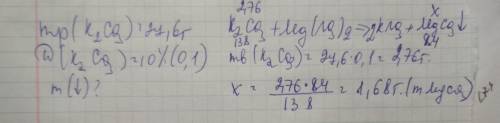 mp(K₂CO₃)=27,6г
ω(K₂CO₃)=10%(0,1)
m(↓)?
2,76 x
K₂CO₃+Mg(NO₃)₂=>2KNO₃+MgCO₃↓
138 84
mв(K₂CO₃)=27,6·0,1=2,76г.
x = 2,76·84 / 138 = 1,68г.(m MgCO₃)